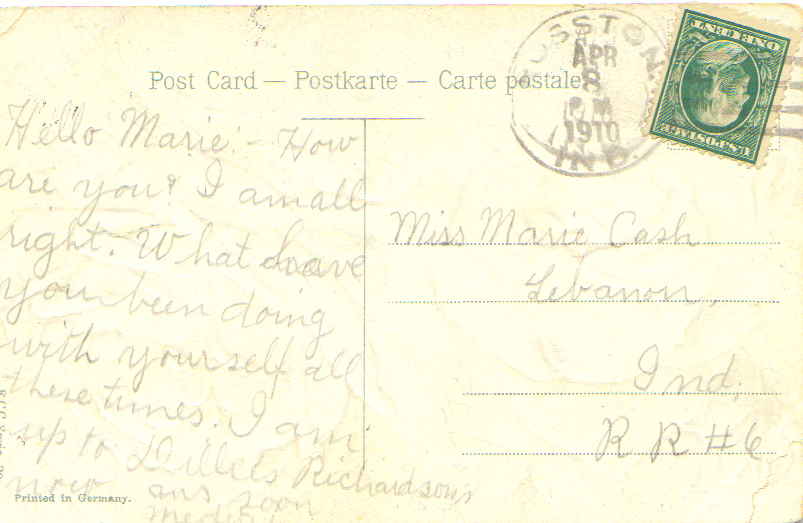 Post Card — Postkarte — Carte postale
ROSSTON
APR
8
1910
IND.
ONE CENT
U.S. POSTAGE
Hello Marie:- How
are you? I am all
right. What have
you been doing
with yourself all
these times. I am
up to Dillies Richardson's
now ans soon
Miss Marie Cash
Lebanon,
Ind,
R R #6
Printed in Germany.